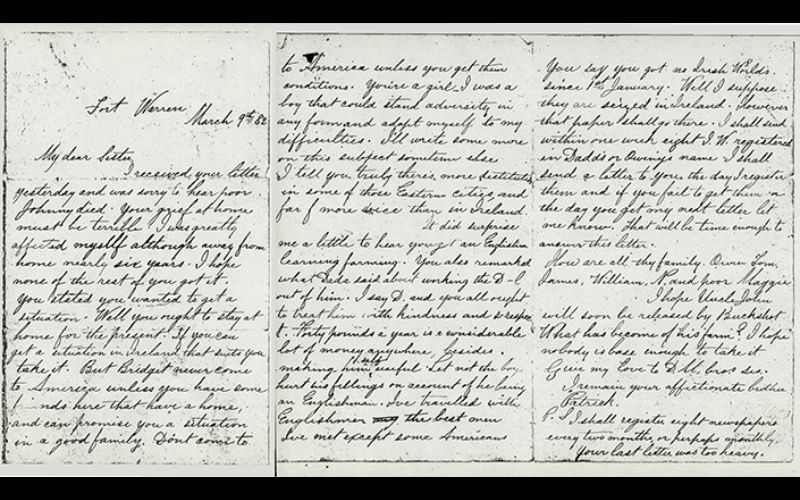 Fort Warren
March 9th 82
My dear Sister
I received your letter
yesterday and was sorry to hear poor
Johnny died. Your grief at home
must be terrible I was greatly
affected myself although away from
home nearly six years. I hope
none of the rest of you got it.
You stated you wanted to get a
situation. Well you ought to stay at
home for the present. If you can
get a situation in Ireland that suits you
take it. But Bridget never come
to America unless you have some
friends here that have a home,
and can promise you a situation
in a good family. Dont come to
to America unless you get them
conditions. You're a girl I was a
boy that could stand adversity in
any form and adapt myself to my
difficulties. I'll write some more
on this subject sometime else.
I tell you truly there's more
in some of those Eastern cities and
far more vice than in Ireland.
It did surprise
me a little to hear you got an Englishman
learning farming. You also remarked
what Dada said about working the D-l
out of him. I say D. and you all ought
to treat him with kindness and respec
t. Forty pounds a year is a considerable
lot of money anywhere, besides
making himself useful. Let not the boy
hurt his feelings on account of he being
an Englishman. I've travelled with
Englishmen the best men
I've met except some Americans
You say you got no Irish Worlds
since 1st January. Well I suppose
they are seized in Ireland. However
that paper shall go there. I shall send
within one week eight I. W. registered
in Dadds or Owney's name I shall
send a letter to you the day I register
them and if you fail to get them on
the day you get my next letter let
me know. That will be time enough to
answer this letter.
How are all thy family. Owen Tom,
James, William, N. and poor Maggie
I hope Uncle John
will soon be released by Buckshot
What has become of his farm? I hope
nobody is base enough to take it
Give my love to D.M. bros ses.
I remain your affectionate brother
Patrick.
P. S I shall register eight newspapers
every two months, or perhaps monthly.
Your last letter was too heavy.